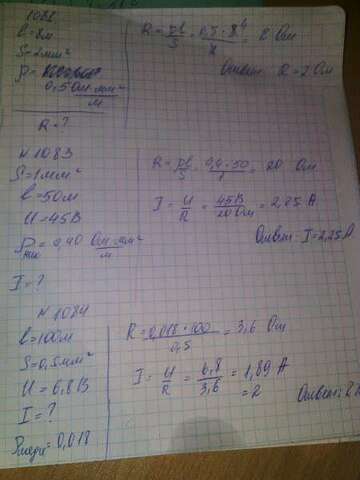 1082
l=8м
S=2мм²
ρ=
0,5 Ом·мм²
м
R=?
R=ρl/S=0,5·8/2=2 Ом
Ответ: R=2 Ом
№1083
S=1мм²
l=50м
U=45В
ρник=0,40 Ом·мм²/м
I=?
R=ρl/S=0,4·50/1=20 Ом
I=U/R=45В/20 Ом=2,25 А
Ответ: I=2,25 А
№1084
l=100м
S=0,5мм²
U=6,8В
I=?
ρмеди=0,018
R=0,018·100/0,5=3,6 Ом
I=U/R=6,8/3,6=1,89 А
=2
Ответ: